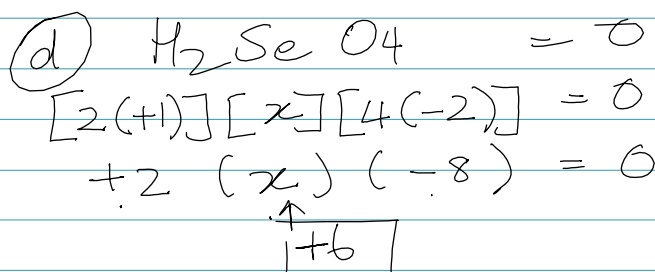 (d) H2SeO4 = 0
[2(+1)][x][4(-2)] = 0
+2 (x) (-8) = 0
+6